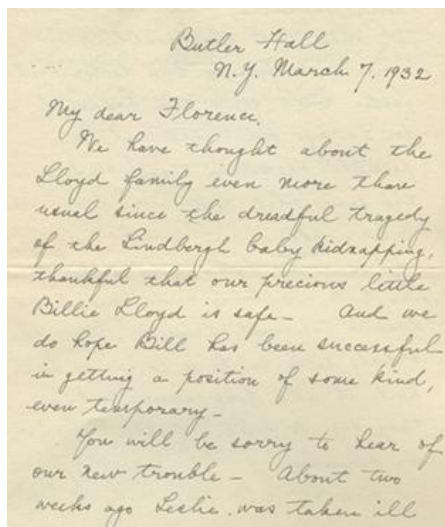 Butler Hall
N.Y. March 7, 1932
My dear Florence,
We have thought about the
Lloyd family even more than
usual since the dreadful tragedy
of the Lindbergh baby kidnapping,
thankful that our precious little
Billie Lloyd is safe - And we
do hope Bill has been successful
in getting a position of some kind,
even temporary -
You will be sorry to hear of
our new trouble - About two
weeks ago Leslie was taken ill